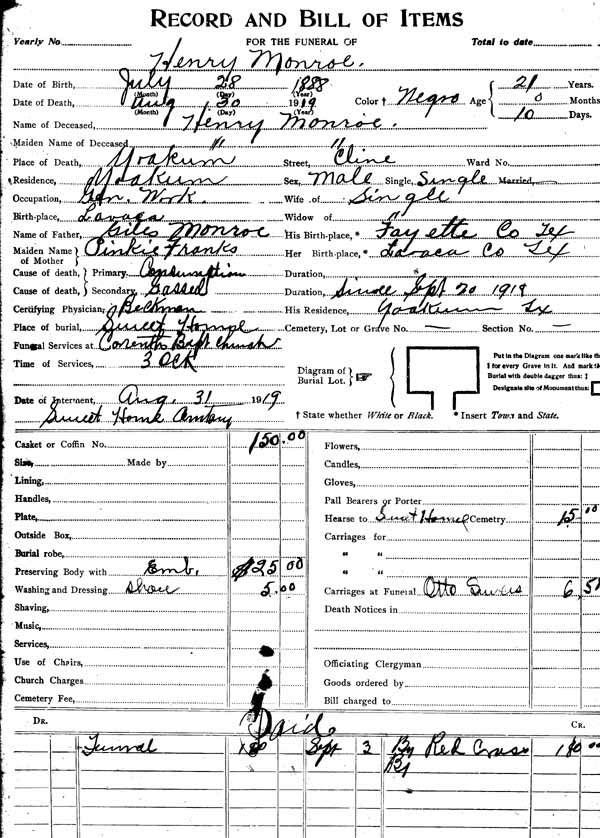 RECORD AND BILL OF ITEMS
Yearly No. FOR THE FUNERAL OF Total to date
Henry Monroe.
Date of Birth, July 28 1888
(Month) (Day) (Year)
Date of Death, Aug 30 1919 Color † Negro Age { 21 Years. 0 Months 10 Days.
(Month) (Day) (Year)
Name of Deceased, Henry Monroe.
Maiden Name of Deceased, " "
Place of Death, Yoakum Street, Cline Ward No.
Residence, Yoakum Sex, Male Single, Single Married,
Occupation, Gen. Work. Wife of Single
Birth-place, Lavaca Widow of "
Name of Father, Giles Monroe His Birth-place, * Fayette Co Tex
Maiden Name of Mother } Pinkie Franks Her Birth-place, * Lavaca Co Tex
Cause of death, } Primary, Consumption Duration,
Cause of death, } Secondary, Gassed Duration, Since Sept 20 1918
Certifying Physician, Beckman His Residence, Yoakum Tx
Place of burial, Sweet Home Cemetery, Lot or Grave No. — Section No. —
Funeral Services at Corenth Bapt Church
Time of Services, 3 OCK
Diagram of Burial Lot. }
Put in the Diagram one mark like th
‡ for every Grave in it. And mark th
Burial with double dagger thus: ‡
Designate site of Monument thus:
Date of Interment, Aug. 31 1919
Sweet Home † State whether White or Black. * Insert Town and State.
Casket or Coffin No. 150.00
Size, Made by
Lining,
Handles,
Plate,
Outside Box,
Burial robe,
Preserving Body with Emb. $25 00
Washing and Dressing 5.00
Shaving,
Music,
Services,
Use of Chairs,
Church Charges
Cemetery Fee,
Flowers,
Candles,
Gloves,
Pall Bearers or Porter
Hearse to Home Cemetry 15 00
Carriages for
" "
" "
Carriages at Funeral Otto 6.5
Death Notices in
Officiating Clergyman
Goods ordered by
Bill charged to
DR. Paid CR.
Funeral 180 Sept 3 By Red Cross 180 00
By